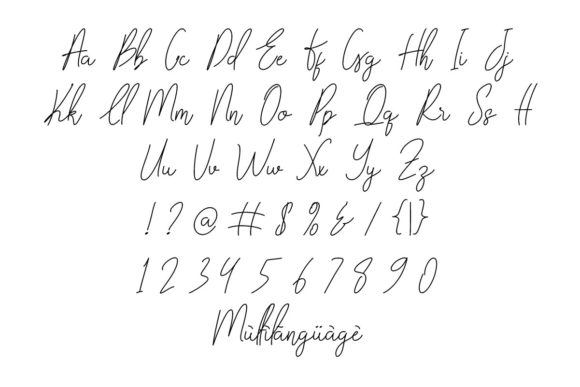 Aa Bb Cc Dd Ee Ff Gg Hh Ii Jj
Kk Ll Mm Nn Oo Pp Qq Rr Ss Tt
Uu Vv Ww Xx Yy Zz
! ? @ # $ % & / { | }
1 2 3 4 5 6 7 8 9 0
Mùltilãngüàgè